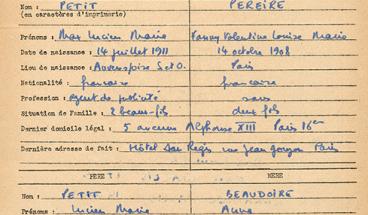 Nom : PETIT PEREIRE
(en caractères d'imprimerie)
Prénoms : Max Lucien Marie Fanny Valentine Louise Marie
Date de naissance : 14 juillet 1911 14 octobre 1908
Lieu de naissance : Auvers s/oise S et O. Paris
Nationalité : française française
Profession : agent de publicité sans
Situation de Famille : 2 beaux-fils deux fils
Dernier domicile légal : 5 avenue Alphonse XIII Paris 16em
Dernière adresse de fait : Hôtel San Regis rue Jean Goujon Paris
PERE MERE
Nom : PETIT BEAUDOIRE
Prénoms : Lucien Marie Anna